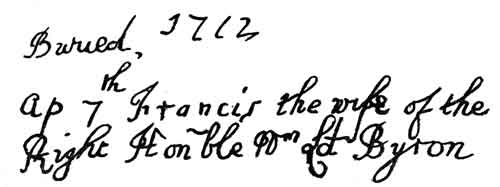 Buried, 1712
Ap 7th Francis the wife of the
Right Hon~ble Wm Ld Byron